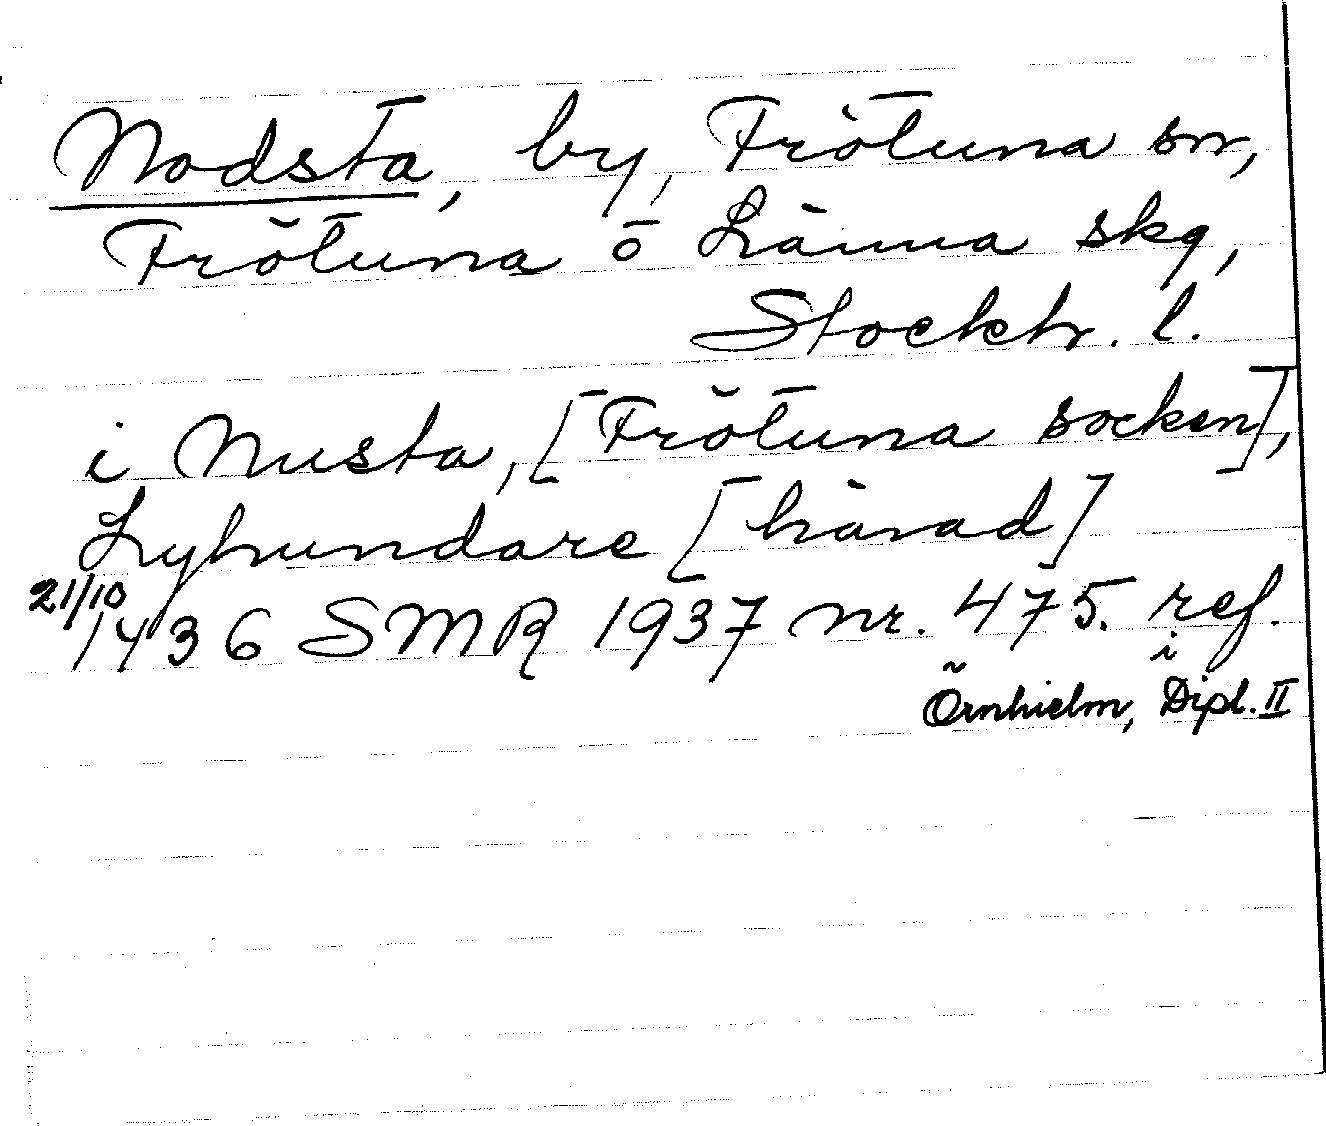 Nodsta, by, Frötuna sn,
Frötuna o Länna skg,
Stockh. l.
i Nusta, [Frötuna socken],
Lyhundare [härad]
21/10 1436 SMR 1937 nr. 475. ref.
i Örnhielm, Dipl. II